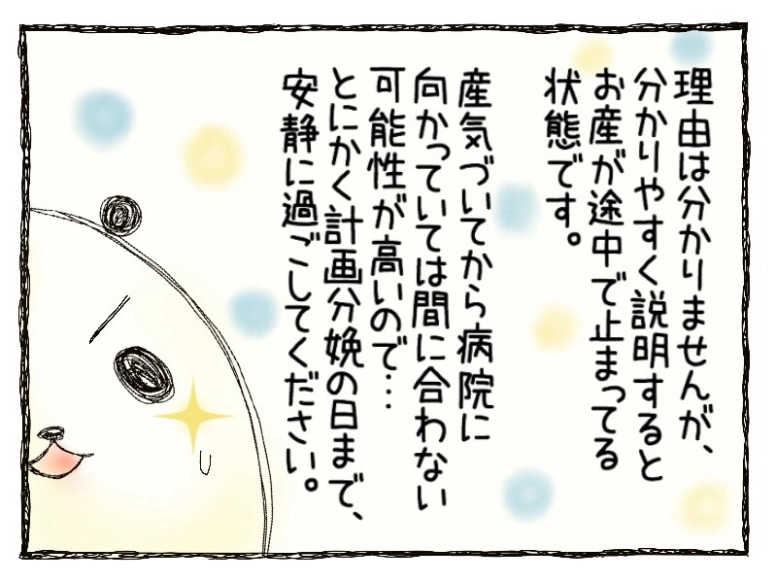 理由は分かりませんが、
分かりやすく説明すると
お産が途中で止まってる
状態です。
産気づいてから病院に
向かっていては間に合わない
可能性が高いので…
とにかく計画分娩の日まで、
安静に過ごしてください。